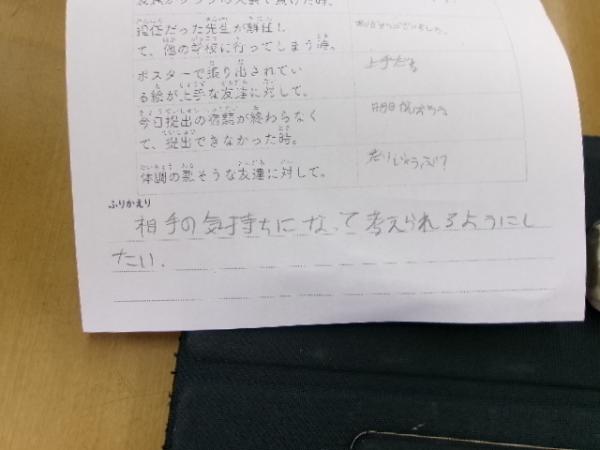 担任だった先生が離任し
て、他の学校に行ってしまう時。
ありがとうございました。
ポスターで張り出されてい
る絵が上手な友達に対して。
上手だね
今日提出の宿題が終わらなく
て、提出できなかった時。
明日
体調の悪そうな友達に対して。
だいじょうぶ?
ふりかえり
相手の気持ちになって考えられるようにし
たい。